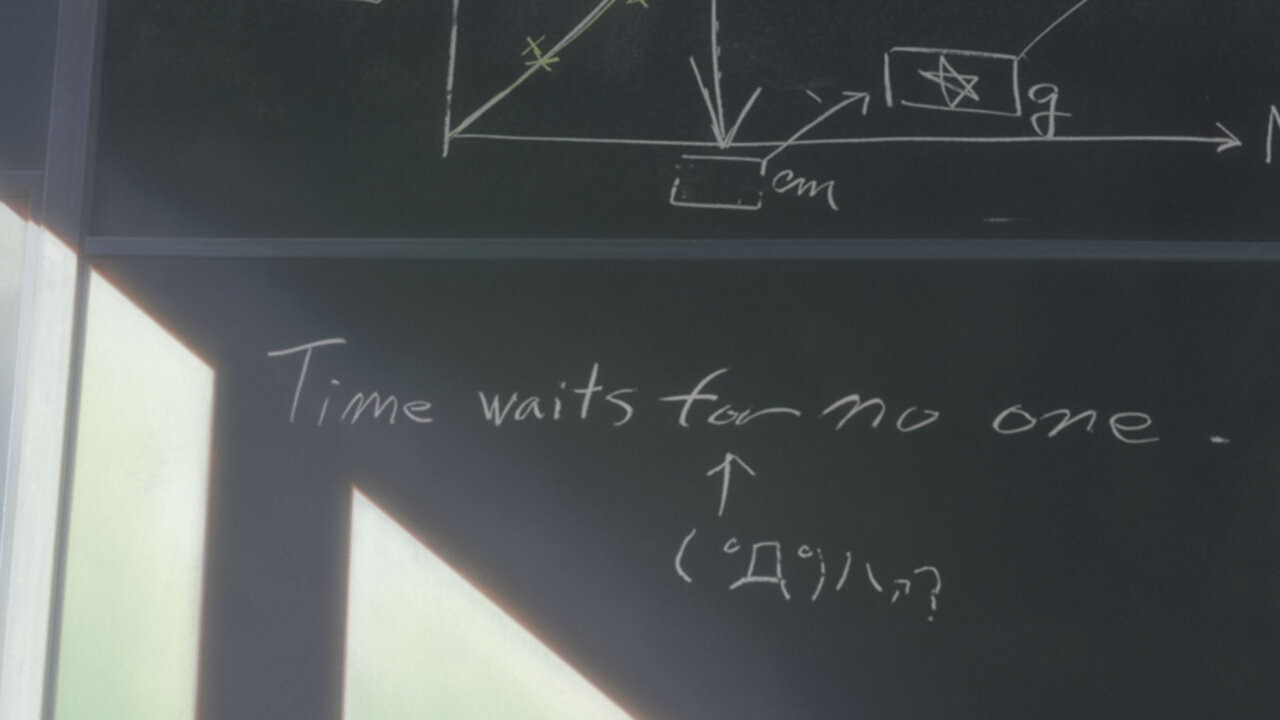 g
cm
Time waits for no one.
↑
(゚Д゚)ハァ?